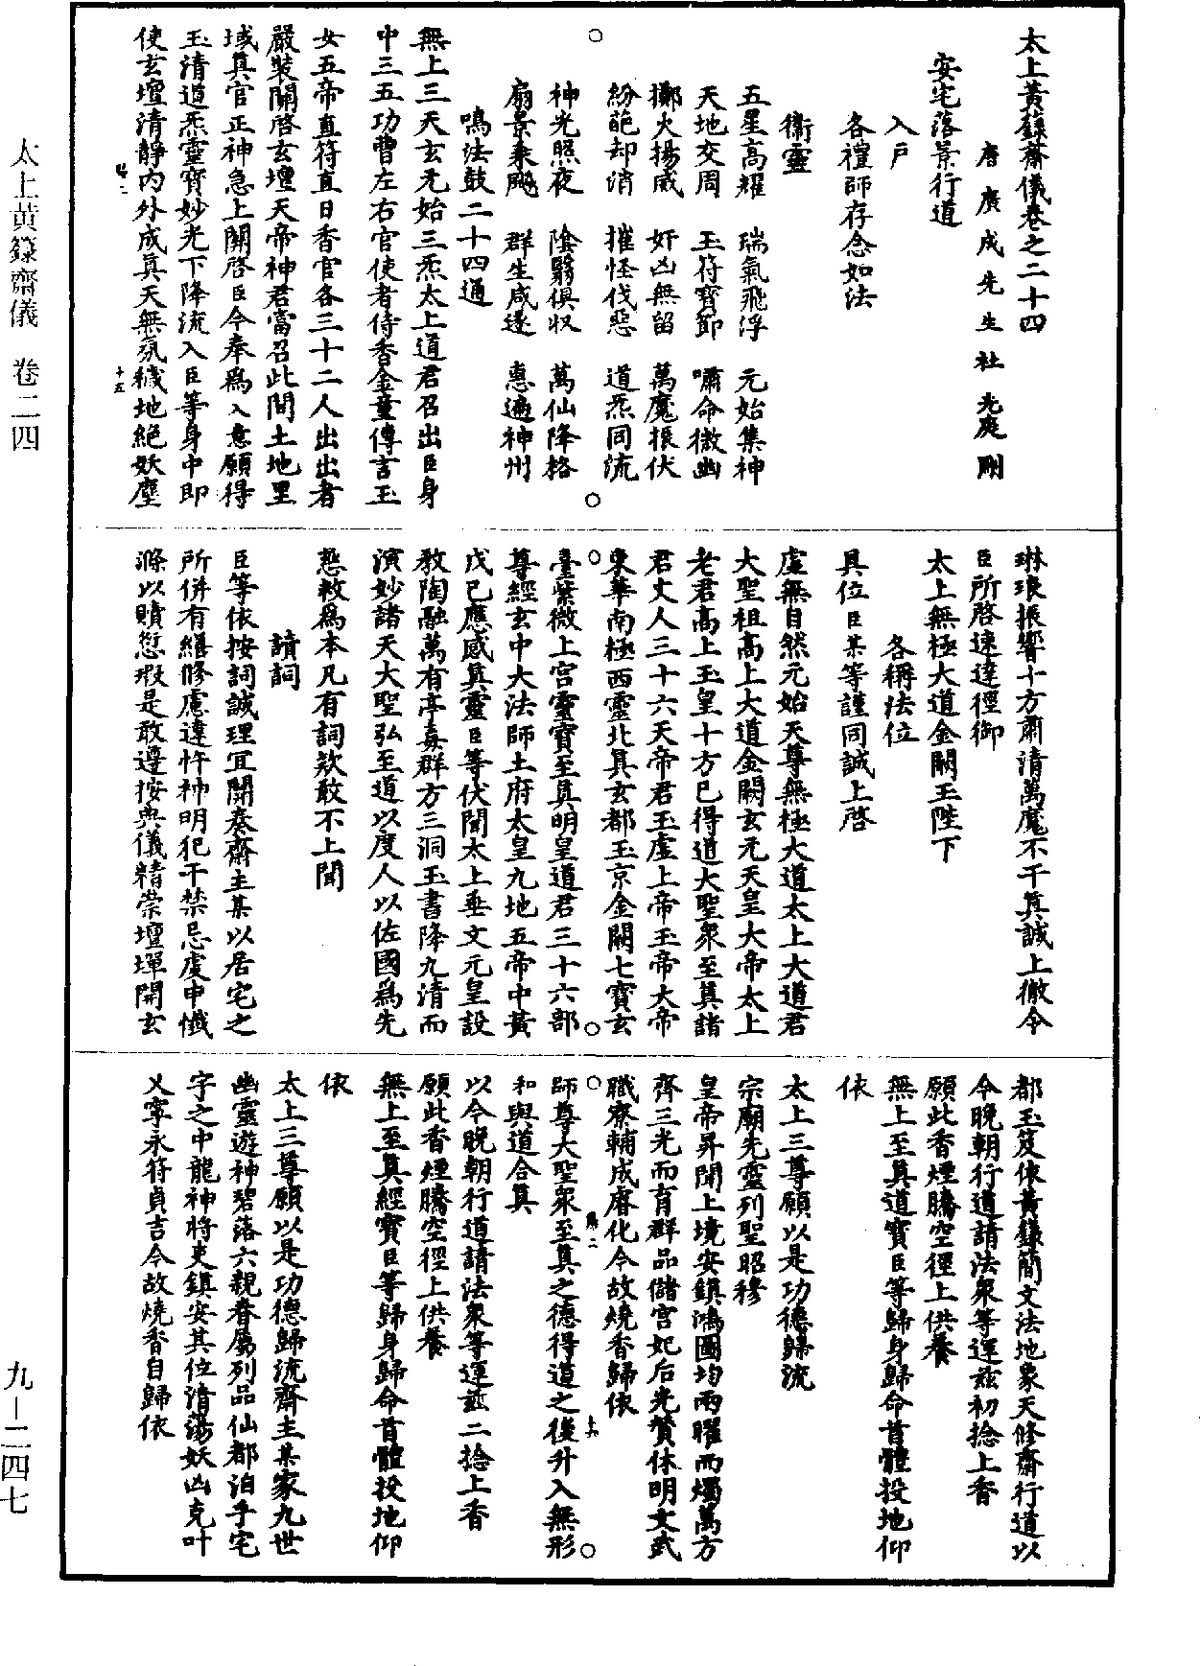 太上黃籙齋儀卷之二十四
唐廣成先生杜光庭刪
安宅落景行道
入戶
各禮師存念如法
衞靈
五星高耀　瑞氣飛浮　元始集神
天地交周　玉符寶節　嘯命徵幽
擲火揚威　奸凶無留　萬魔振伏
紛葩却消　摧怪伐惡　道炁同流
神光照夜　陰翳俱收　萬仙降格
扇景乘飈　群生咸遂　惠遍神州
鳴法鼓二十四通
無上三天玄元始三炁太上道君召出臣身
中三五功曹左右官使者侍香金童傳言玉
女五帝直符直日香官各三十二人出出者
嚴裝關啓玄壇天帝神君當召此間土地里
域真官正神急上關啓臣今奉爲入意願得
玉清道炁靈寶妙光下降流入臣等身中即
使玄壇清靜內外成真天無氛穢地絕妖塵
琳琅振響十方肅清萬魔不干真誠上徹令
臣所啓速達徑御
太上無極大道金闕玉陛下
各稱法位
具位臣某等謹同誠上啓
虛無自然元始天尊無極大道太上大道君
大聖祖高上大道金闕玄元天皇大帝太上
老君高上玉皇十方已得道大聖眾至真諸
君丈人三十六天帝君玉虛上帝玉帝大帝
東華南極西靈北真玄都玉京金闕七寶玄
臺紫微上宮靈寶至真明皇道君三十六部
尊經玄中大法師土府太皇九地五帝中黃
戊己應感真靈臣等伏聞太上垂文元皇設
教陶融萬有亭毒群方三洞玉書降九清而
演妙諸天大聖弘至道以度人以佐國爲先
愍救爲本凡有詞欵敢不上聞
讀詞
臣等依按詞誠理宜關奏齋主某以居宅之
所併有繕修慮違忤神明犯干禁忌虔申懺
滌以贖愆瑕是敢遵按典儀精崇壇墠開玄
都玉笈依黃籙簡文法地象天修齋行道以
今晚朝行道請法眾等運茲初捻上香
願此香煙騰空徑上供養
無上至真道寶臣等歸身歸命首體投地仰
依
太上三尊願以是功德歸流
宗廟先靈列聖昭穆
皇帝昇聞上境安鎮鴻圖均兩曜而燭萬方
齊三光而育群品儲宮妃后光贊休明文武
職寮輔成睿化今故燒香歸依
師尊大聖眾至真之德得道之後升入無形
和與道合真
以今晚朝行道請法眾等運茲二捻上香
願此香煙騰空徑上供養
無上至真經寶臣等歸身歸命首體投地仰
依
太上三尊願以是功德歸流齋主某家九世
幽靈遊神碧落六親眷屬列品仙都洎乎宅
宇之中龍神將吏鎮安其位清蕩妖凶克叶
乂寧永符貞吉今故燒香自歸依
太上黃籙齋儀　卷二四
九—二四七